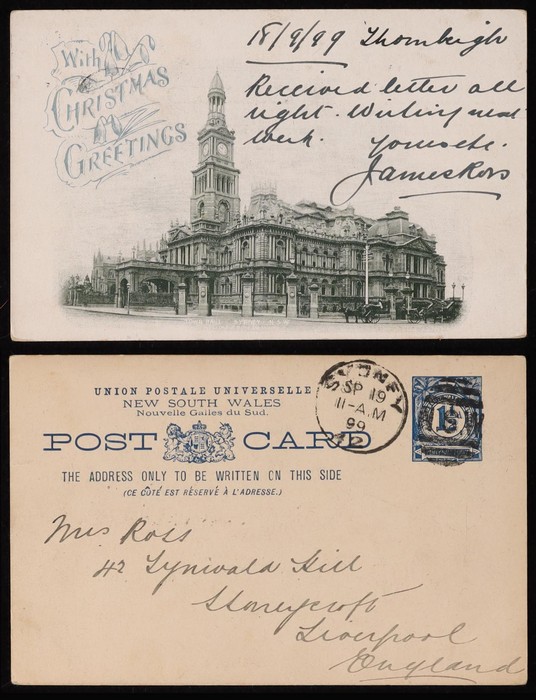 With
CHRISTMAS
GREETINGS
18/9/99 Thornleigh
Received letter all
right. Writing next
week.
Yours etc.
James Ross
TOWN HALL, SYDNEY, N.S.W.
UNION POSTALE UNIVERSELLE
NEW SOUTH WALES
Nouvelle Galles du Sud.
POST CARD
THE ADDRESS ONLY TO BE WRITTEN ON THIS SIDE
(CE CÔTÉ EST RÉSERVÉ À L'ADRESSE.)
SYDNEY
SP 19
11-A.M
99
12
1½
Mrs Ross
42 Tynwald Hill
Stoneycroft
Liverpool
England